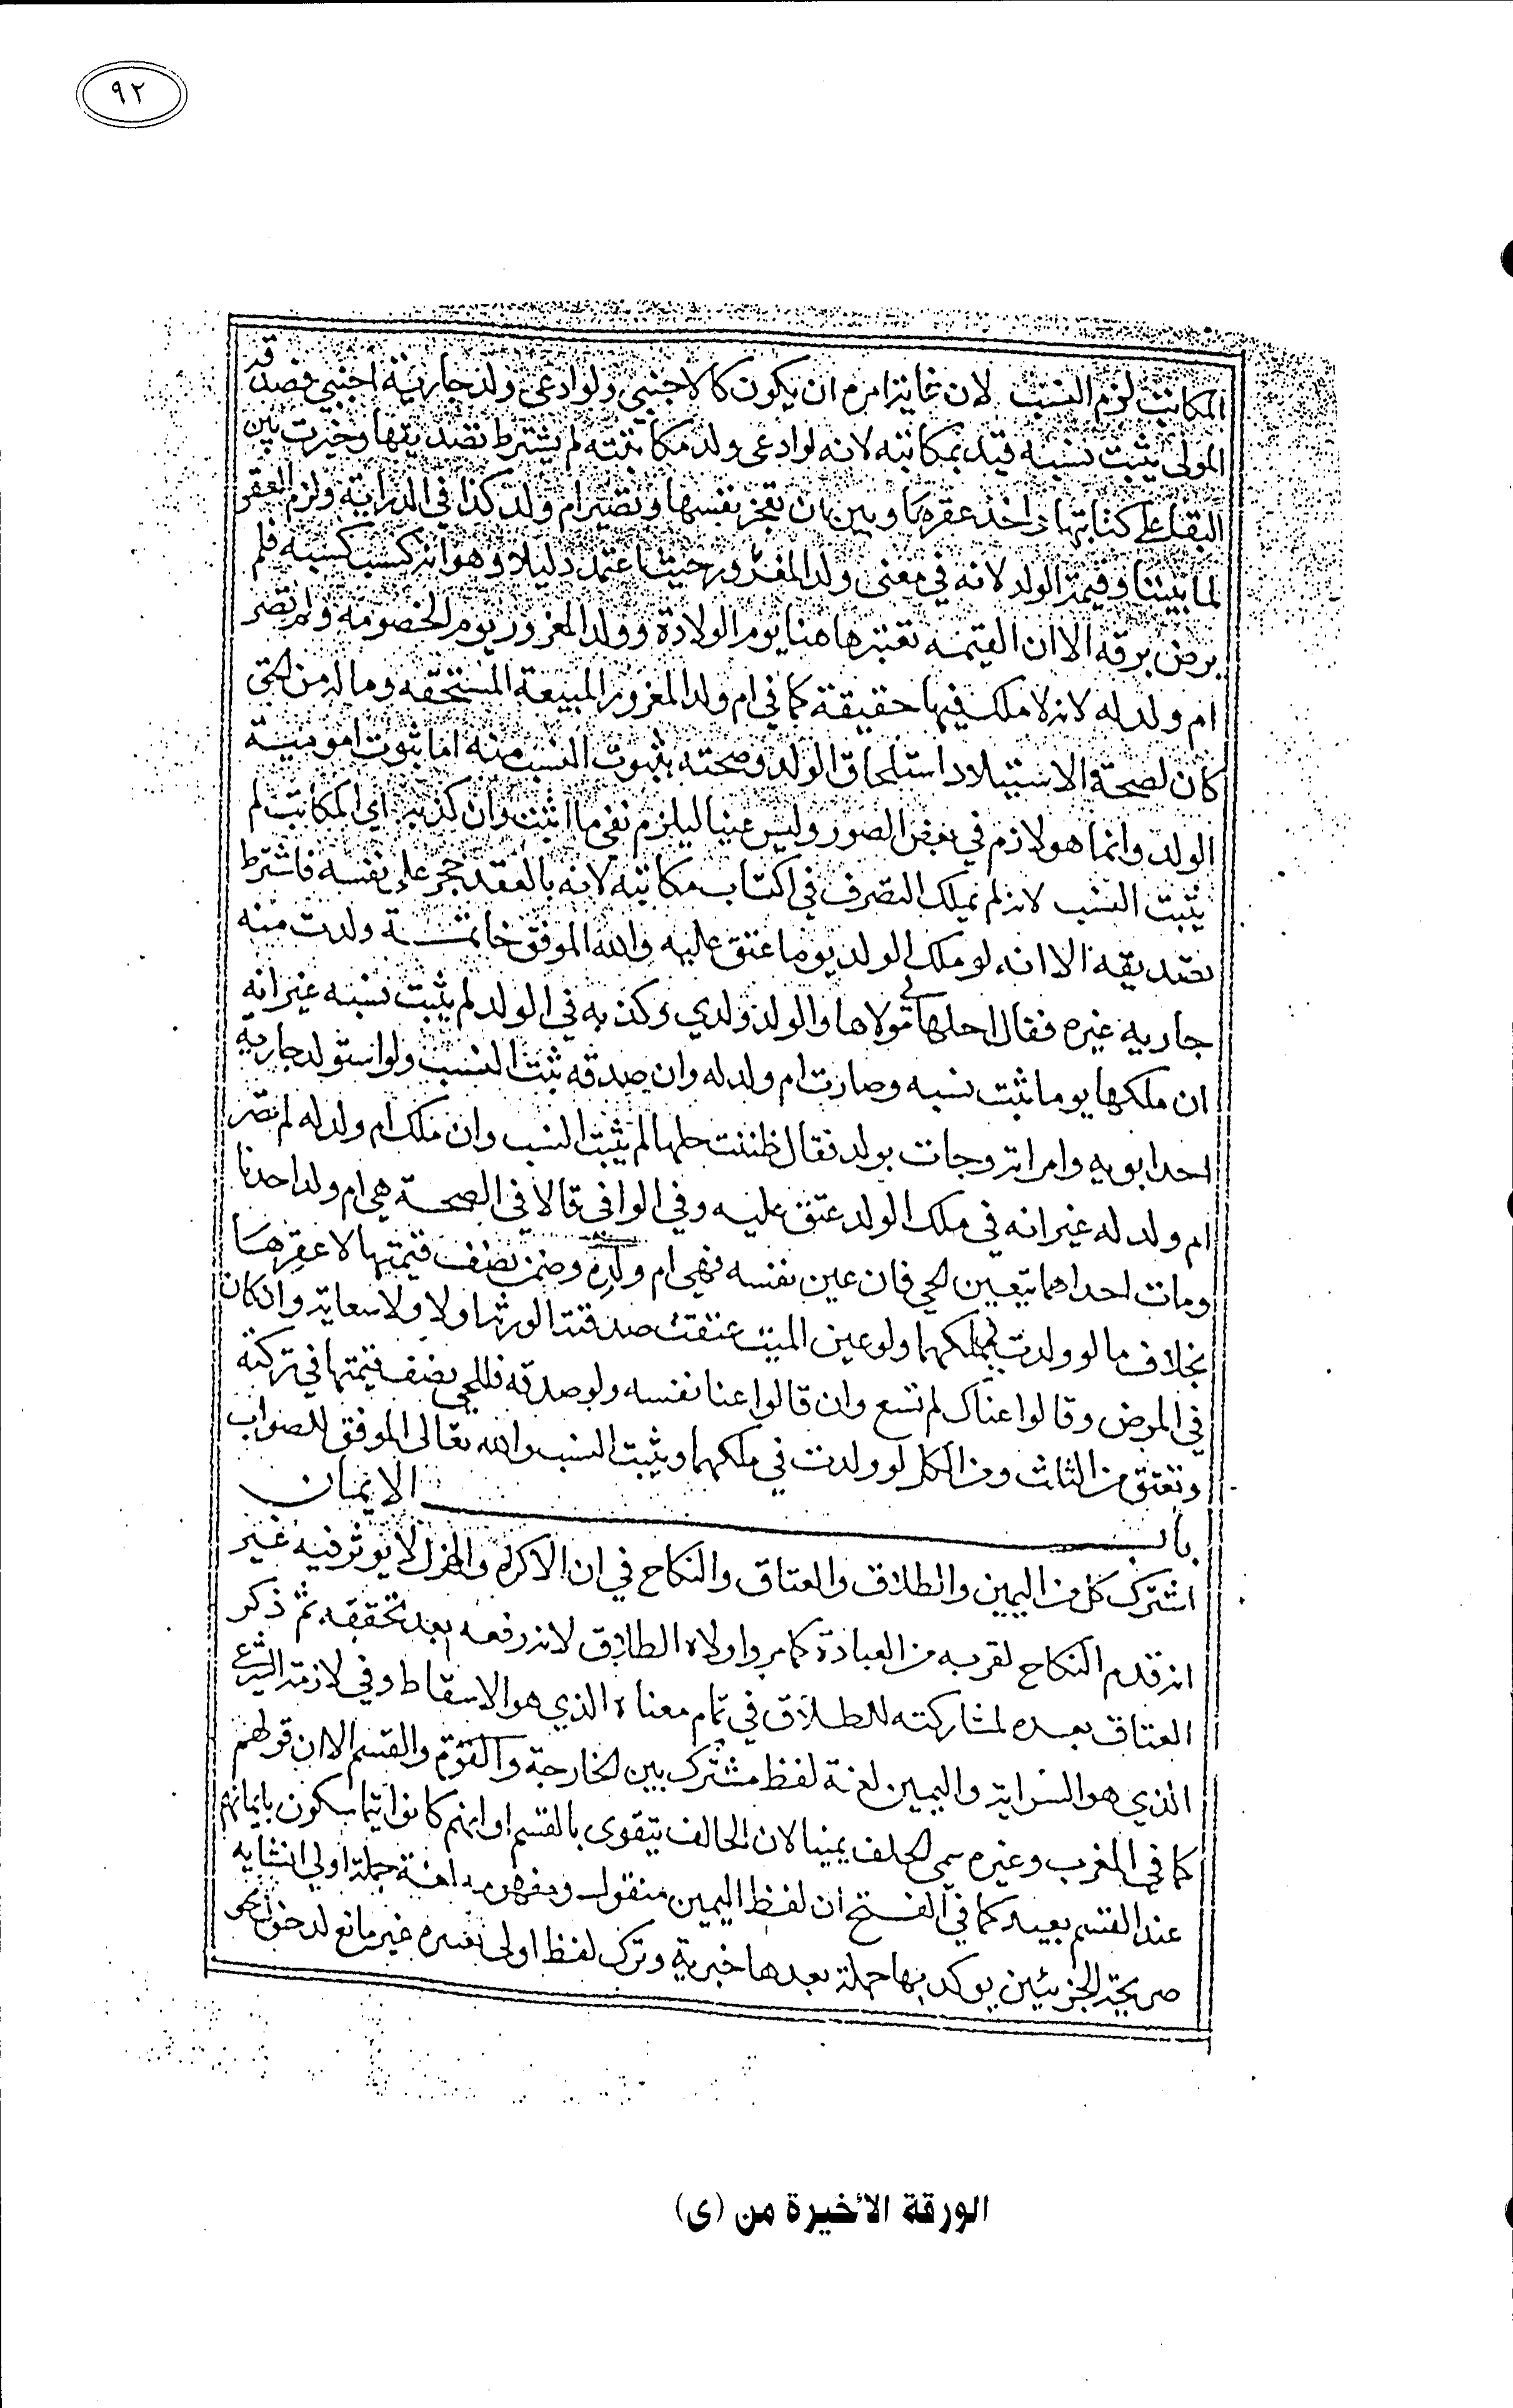 ٩٢
المكاتب لزم النسب لان غايه امره ان يكون كالاجنبي ولو ادعى ولد جارية اجنبي فصدقه
المولى يثبت نسبه قيد بمكاتبه لانه لو ادعى ولد مكاتبته لم يشترط تصديقها وخيرت بين
البقا على كتابتها واخذ عقرها وبين ان تعجز نفسها وتصير ام ولد كذا في الدراية ولزم العقر
لما بينا وقيمة الولد لانه في معنى ولد المغرور حيث اعتمد دليلا وهو انه كسب كسبه فلم
يرض برقه الا ان القيمه تعتبر هاهنا يوم الولادة وولد المغرور يوم الخصومه ولم تصر
ام ولد له لانه لا ملك فيها حقيقة كما في ام ولد المغرور المبيعة المستحقه وماله من الحق
كان لصحة الاستيلاد استلحاق الولد وصحته بثبوت النسب منه اما ثبوت امومية
الولد وانما هو لازم في بعض الصور وليس عينا ليلزم نفي ما اثبت وان كذبه اي المكاتب لم
يثبت النسب لانه لم يملك التصرف في اكتساب مكاتبه لانه بالعقد حجر على نفسه فاشترط
تصديقه الا انه لو ملك الولد يوما عتق عليه والله الموفق خاتمة ولدت منه
جاريه غيره فقال احلها لي مولاها والولد ولدي وكذبه في الولد لم يثبت نسبه غير انه
ان ملكها يوما ثبت نسبه وصارت ام ولد له وان صدقه ثبت النسب ولو استولد جاريه
احد ابويه وامراته وجات بولد فقال ظننت حلها لم يثبت النسب وان ملك ام ولد له لم تصر
ام ولد له غير انه في ملك الولد عتق عليه وفي الوافي قالا في الصحة هي ام ولد احدنا
ومات احداهما بتعيين الحي فان عين نفسه فهي ام ولده وضمن نصف قيمتها لا عقرها
بخلاف ما لو ولدت بملكهما ولو عين الميت عتقت صدقت الورثه اولا ولا سعايه وان كان
في المرض وقالوا عناك لم تسع وان قالوا عنا نفسه ولو صدقه فللحي نصف قيمتها في تركته
وتعتق من الثلث ومن الكل لو ولدت في ملكهما ويثبت النسب والله تعالى الموفق للصواب
باب الايمان
اشترك كل من اليمين والطلاق والعتاق والنكاح في ان الاكراه والهزل لا يوثر فيه غير
انه قدم النكاح لقربه من العبادة كما مر واولاه الطلاق لانه رفعه بعد تحققه ثم ذكر
العتاق بعده لمشاركته للطلاق في تمام معناه الذي هو الاسقاط وفي لازمه الشرعي
الذي هو السرايه واليمين لغة لفظ مشترك بين الجارحة والقوة والقسم الا ان قولهم
كما في المغرب وغيره سمي الحلف يمينا لان الحالف يتقوى بالقسم او انهم كانوا يتماسكون بايمانهم
عند القسم يفيد كما في الفتح ان لفظ اليمين منقول ومفهومه لغة جملة اولى انشايه
صريحة الجزئين يوكد بها جملة بعدها خبرية وترك لفظ اولى تصيره غير مانع لدخول نحو
الورقة الأخيرة من (ى)